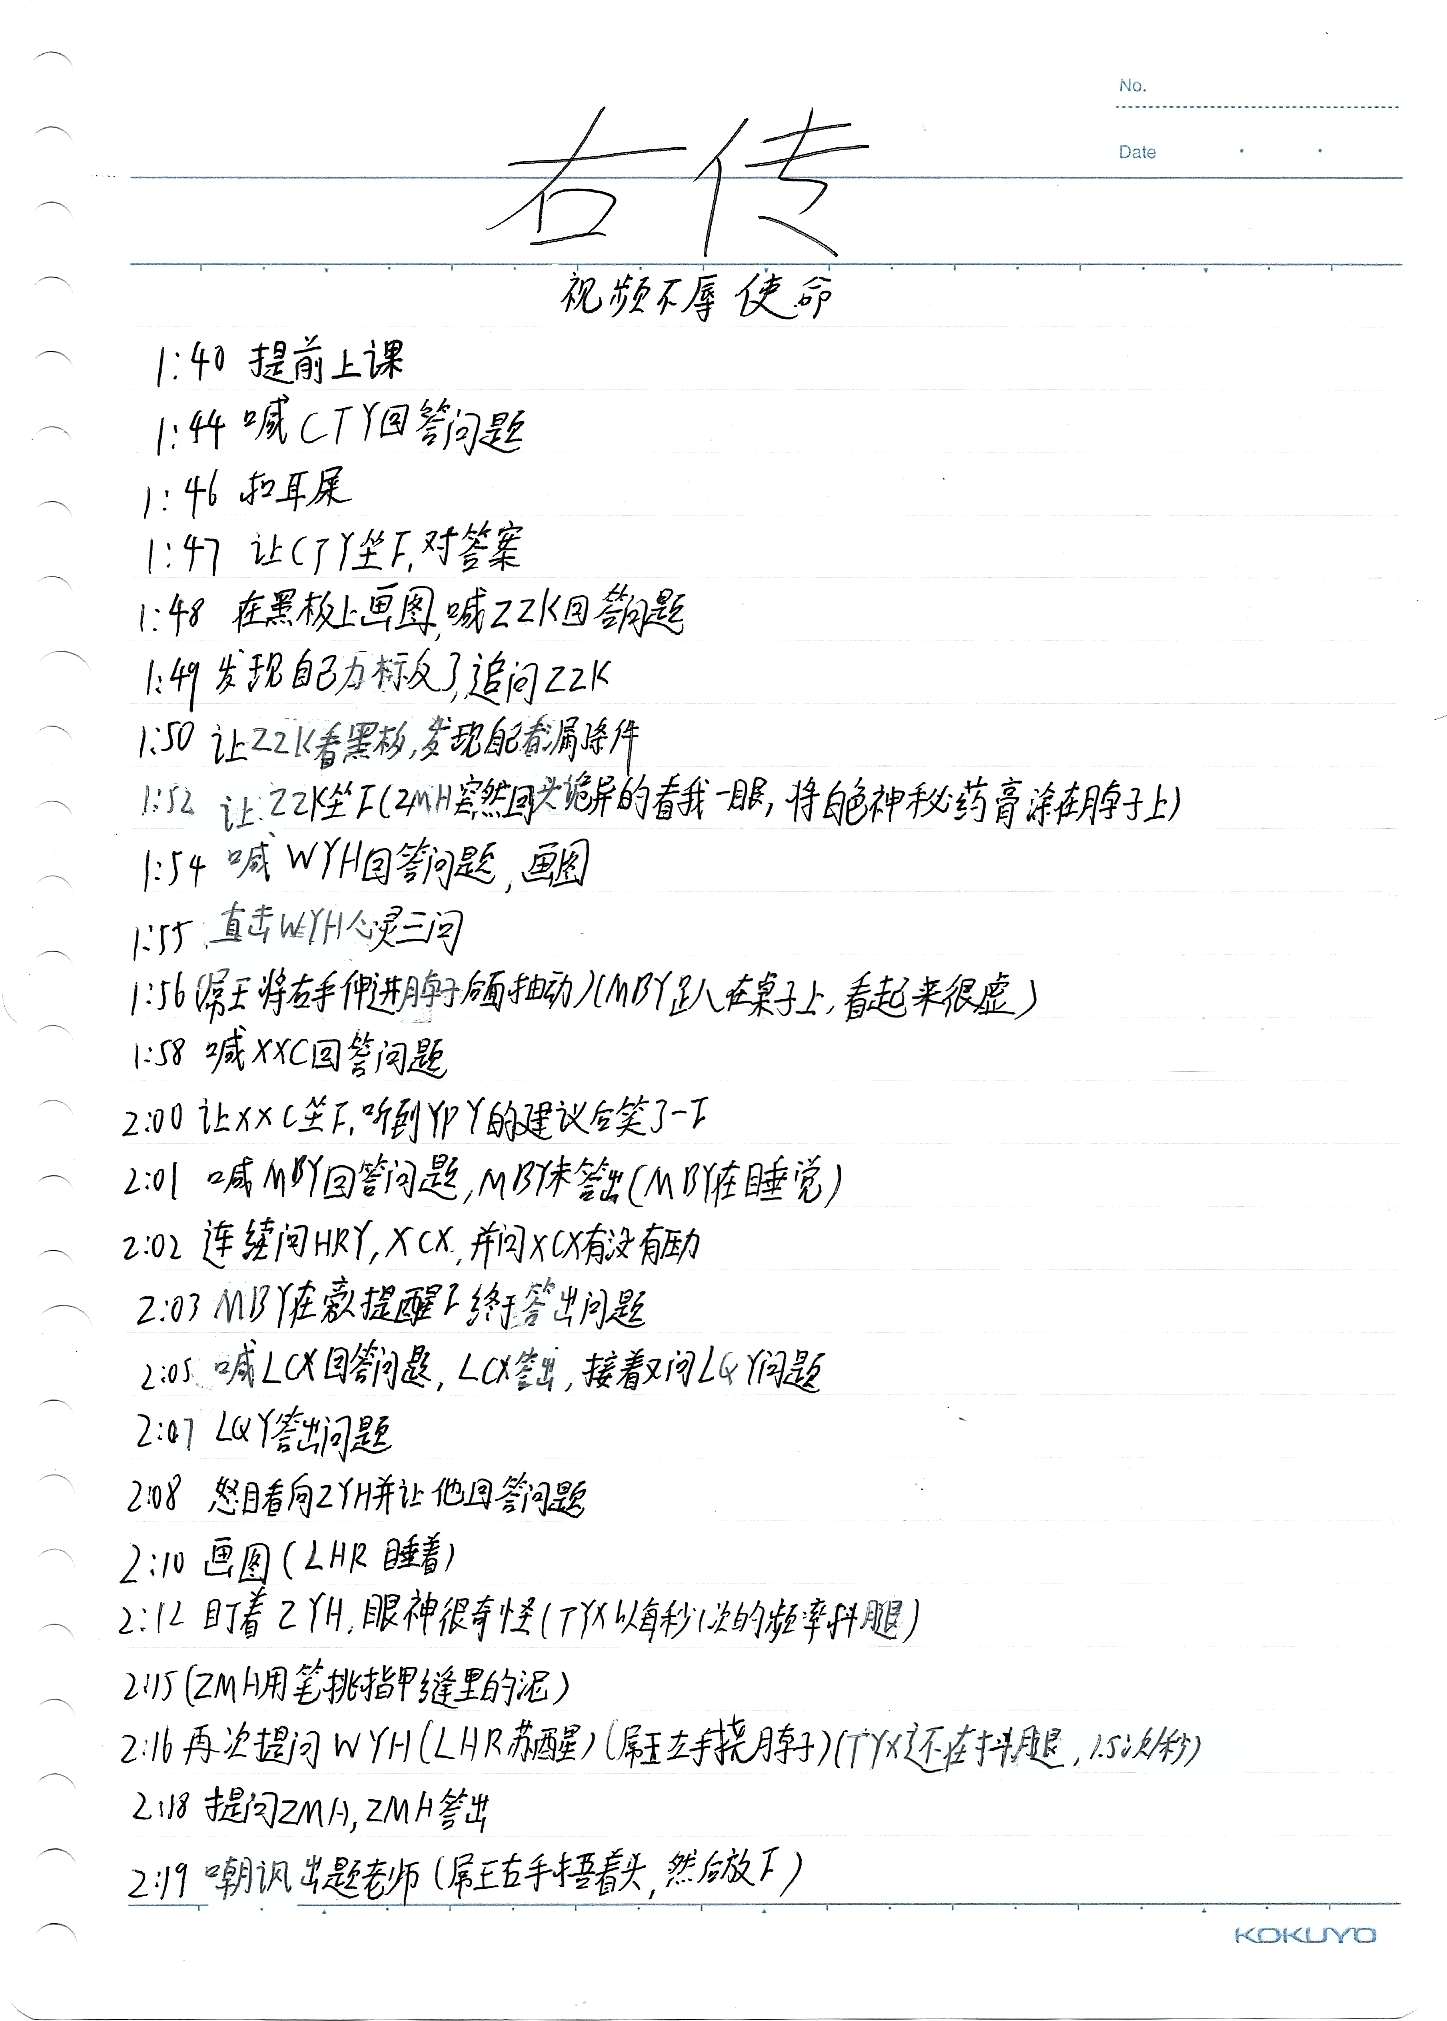 No.
Date
右传
视频不辱使命
1:40 提前上课
1:44 喊CTY回答问题
1:46 扣耳屎
1:47 让CTY坐下,对答案
1:48 在黑板上画图,喊ZZK回答问题
1:49 发现自己力标反了,追问ZZK
1:50 让ZZK看黑板,发现自己看漏条件
1:52 让ZZK坐下(ZMH突然回头诡异的看我一眼,将白色神秘药膏涂在脖子上)
1:54 喊WYH回答问题,画图
1:55 直击WYH心灵三问
1:56(屌王将右手伸进脖子后面抽动)(MBY趴在桌子上,看起来很虚)
1:58 喊XXC回答问题
2:00 让XXC坐下,听到YPY的建议后笑了一下
2:01 喊MBY回答问题,MBY未答出(MBY在睡觉)
2:02 连续问HRY,XCX,并问XCX有没有压力
2:03 MBY在提醒下终于答出问题
2:05 喊LCX回答问题,LCX答出,接着又问LQY问题
2:07 LQY答出问题
2:08 怒目看向ZYH并让他回答问题
2:10 画图(LHR睡着)
2:12 盯着ZYH,眼神很奇怪(TYX以每秒1次的频率抖腿)
2:15(ZMH用笔挑指甲缝里的泥)
2:16 再次提问WYH(LHR苏醒)(屌王左手挠脖子)(TYX还在抖腿,1.5次/秒)
2:18 提问ZMH,ZMH答出
2:19 嘲讽出题老师(屌王右手捂着头,然后放下)
KOKUYO